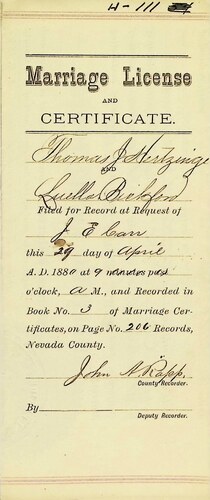 H-111
Marriage License
AND
CERTIFICATE.
Thomas J Hertzinge
AND
Luella Bickford
Filed for Record at Request of
J E Carr
this 29 day of April
A. D. 1880 at 9 minutes past
o'clock, A M., and Recorded in
Book No. 3 of Marriage Cer-
tificates, on Page No. 206 Records,
Nevada County.
John N. Rapp.
County Recorder.
By
Deputy Recorder.